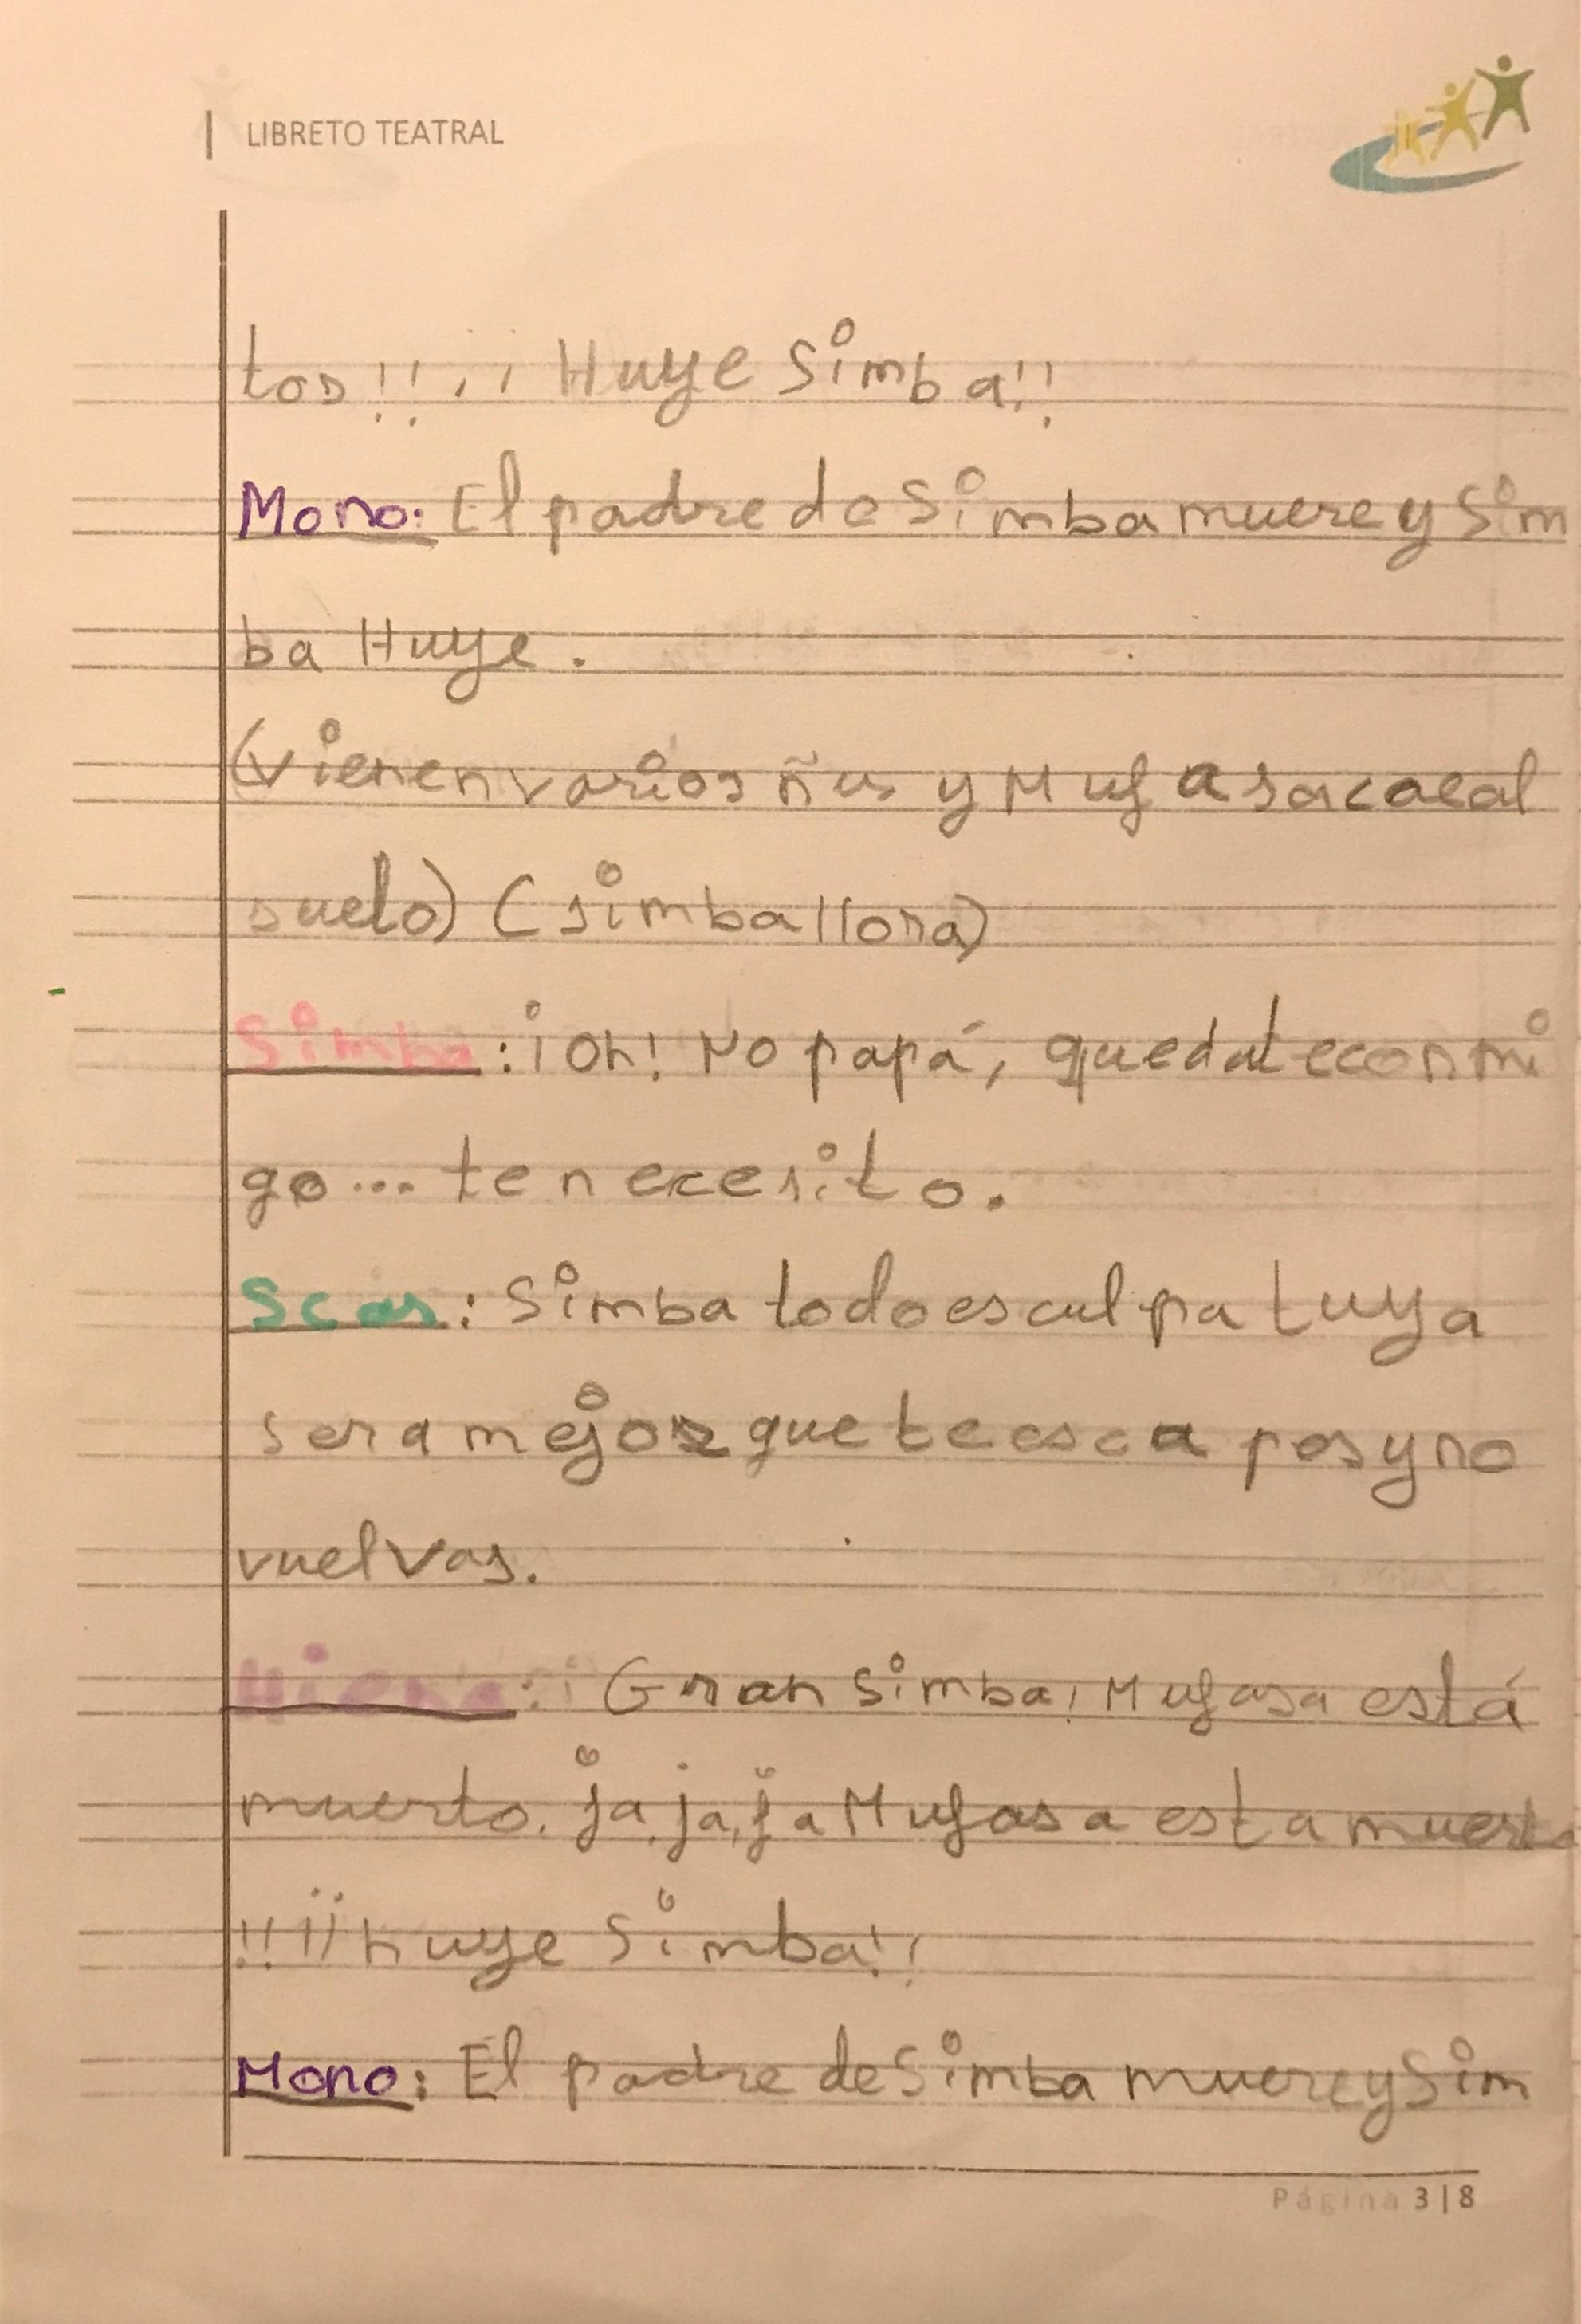 LIBRETO TEATRAL
tos!! ¡¡ Huye Simba!!
Mono: El padre de Simba muere y Sim
ba Huye.
(vienen varios ñus y Mufasa cae al
suelo) (simba llora)
Simba: ¡Oh! No papá, quedate conmi
go... te necesito.
Scar: Simba todo es culpa tuya
sera mejor que te escapes y no
vuelvas.
Hiena: ¡Gran Simba! Mufasa está
muerto. ja, ja, ja Mufasa esta muerto
!!¡¡huye Simba!!
Mono: El padre de Simba muere y Sim
Página 3|8